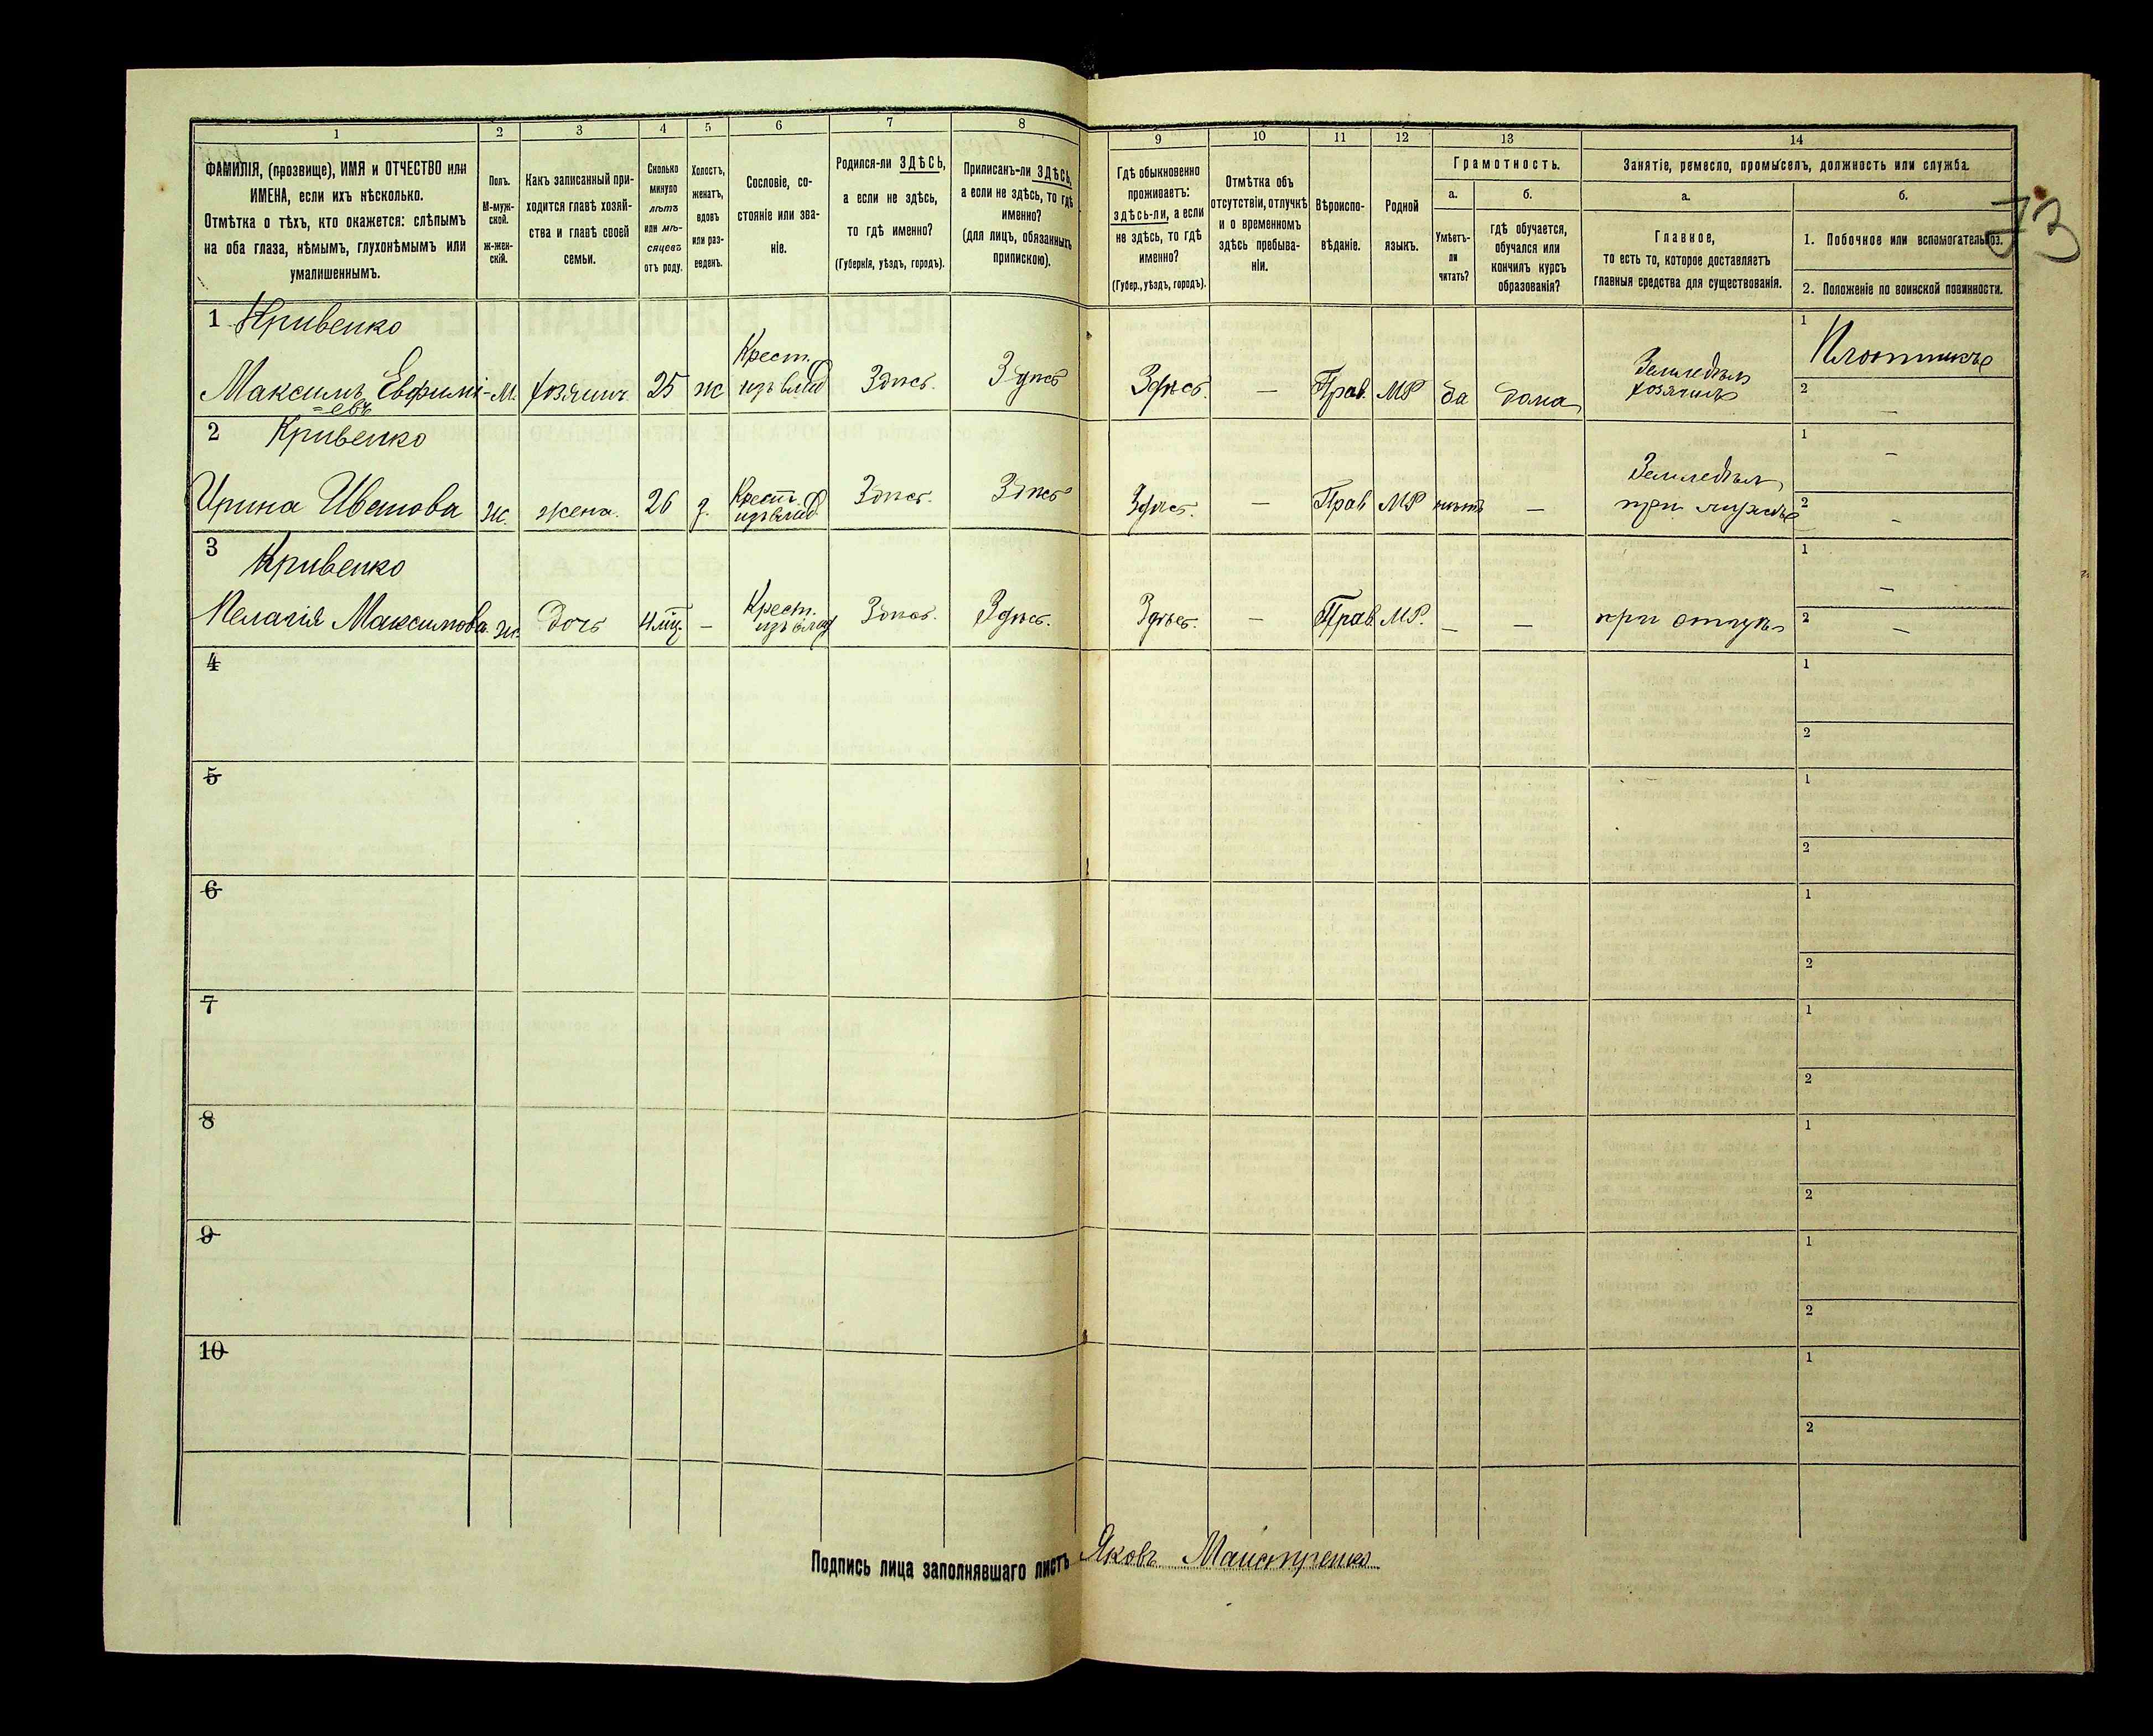 1 2 3 4 5 6 7 8 9 10 11 12 13 14
ФАМИЛІЯ, (прозвище), ИМЯ и ОТЧЕСТВО или
ИМЕНА, если ихъ нѣсколько.
Отмѣтка о тѣхъ, кто окажется: слѣпымъ
на оба глаза, нѣмымъ, глухонѣмымъ или
умалишеннымъ.
Полъ.
М-муж-
ской.
ж-жен-
скій.
Какъ записанный при-
ходится главѣ хозяй-
ства и главѣ своей
семьи.
Сколько
минуло
лѣтъ
или мѣ-
сяцевъ
отъ роду.
Холостъ,
женатъ,
вдовъ
или раз-
веденъ.
Сословіе, со-
стояніе или зва-
ніе.
Родился-ли ЗДѢСЬ,
а если не здѣсь,
то гдѣ именно?
(Губернія, уѣздъ, городъ).
Приписанъ-ли ЗДѢСЬ,
а если не здѣсь, то гдѣ
именно?
(для лицъ, обязанныхъ
припискою).
Гдѣ обыкновенно
проживаетъ:
здѣсь-ли, а если
не здѣсь, то гдѣ
именно?
(Губер., уѣздъ, городъ).
Отмѣтка объ
отсутствіи, отлучкѣ
и о временномъ
здѣсь пребыва-
ніи.
Вѣроиспо-
вѣданіе.
Родной
языкъ.
Грамотность.
а.
Умѣетъ-
ли
читать?
б.
гдѣ обучается,
обучался или
кончилъ курсъ
образованія?
Занятіе, ремесло, промыселъ, должность или служба.
а.
Главное,
то есть то, которое доставляетъ
главныя средства для существованія.
б.
1. Побочное или вспомогательное.
2. Положеніе по воинской повинности.
73
1 Кривенко
Максимъ Евфимі-
-евъ
М. хозяинъ 25 ж Крест.
изъ влад Здѣсь. Здѣсь Здѣсь. — Прав. МР да дома Земледѣлъ
хозяинъ
1 Плотникъ
2 —
2 Кривенко
Ирина Иванова ж. жена. 26 з. Крест.
изъ влад Здѣсь. Здѣсь Здѣсь. — Прав МР нѣтъ — Земледѣл.
при мужѣ
1 —
2 —
3 Кривенко
Пелагія Максимова ж. дочь 4 мц. — Крест.
изъ влад Здѣсь. Здѣсь. Здѣсь. — Прав. МР. — — при отцѣ
1 —
2 —
4
1
2
5
1
2
6
1
2
7
1
2
8
1
2
9
1
2
10
1
2
Подпись лица заполнявшаго листъ Яковъ Майстренко